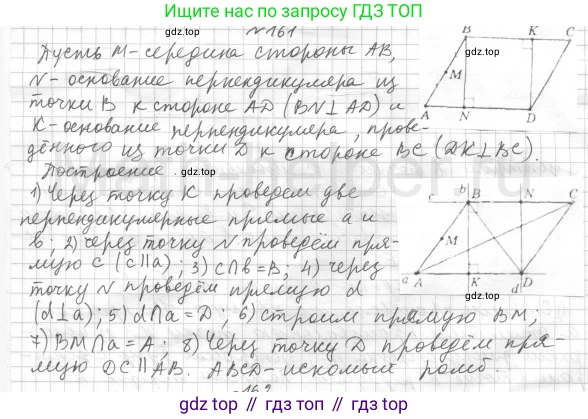 Ищите нас по запросу ГДЗ ТОП
№161
Пусть М-середина стороны АВ,
N- основание перпендикуляра из
точки В к стороне AD (BN⊥AD) и
К-основание перпендикуляра, прове-
дённого из точки D к стороне ВС (DK⊥BC).
Построение
1) Через точку К проведем две
перпендикулярные прямые а и
b; 2) через точку N проведём пря-
мую с (с||а); 3) c∩b=B; 4) через
точку N проведём прямую d
(d⊥a); 5) d∩a=D; 6) строим прямую ВМ;
7) BM∩a=A; 8) Через точку D проведём пря-
мую DC||AB. ABCD-искомый ромб.
B K C
M
A N D
c b B N C
M
a A K D
d
гдз.топ
гдз.топ
гдз.топ
гдз.топ
162
vk.com/gdz_top // гдз.топ